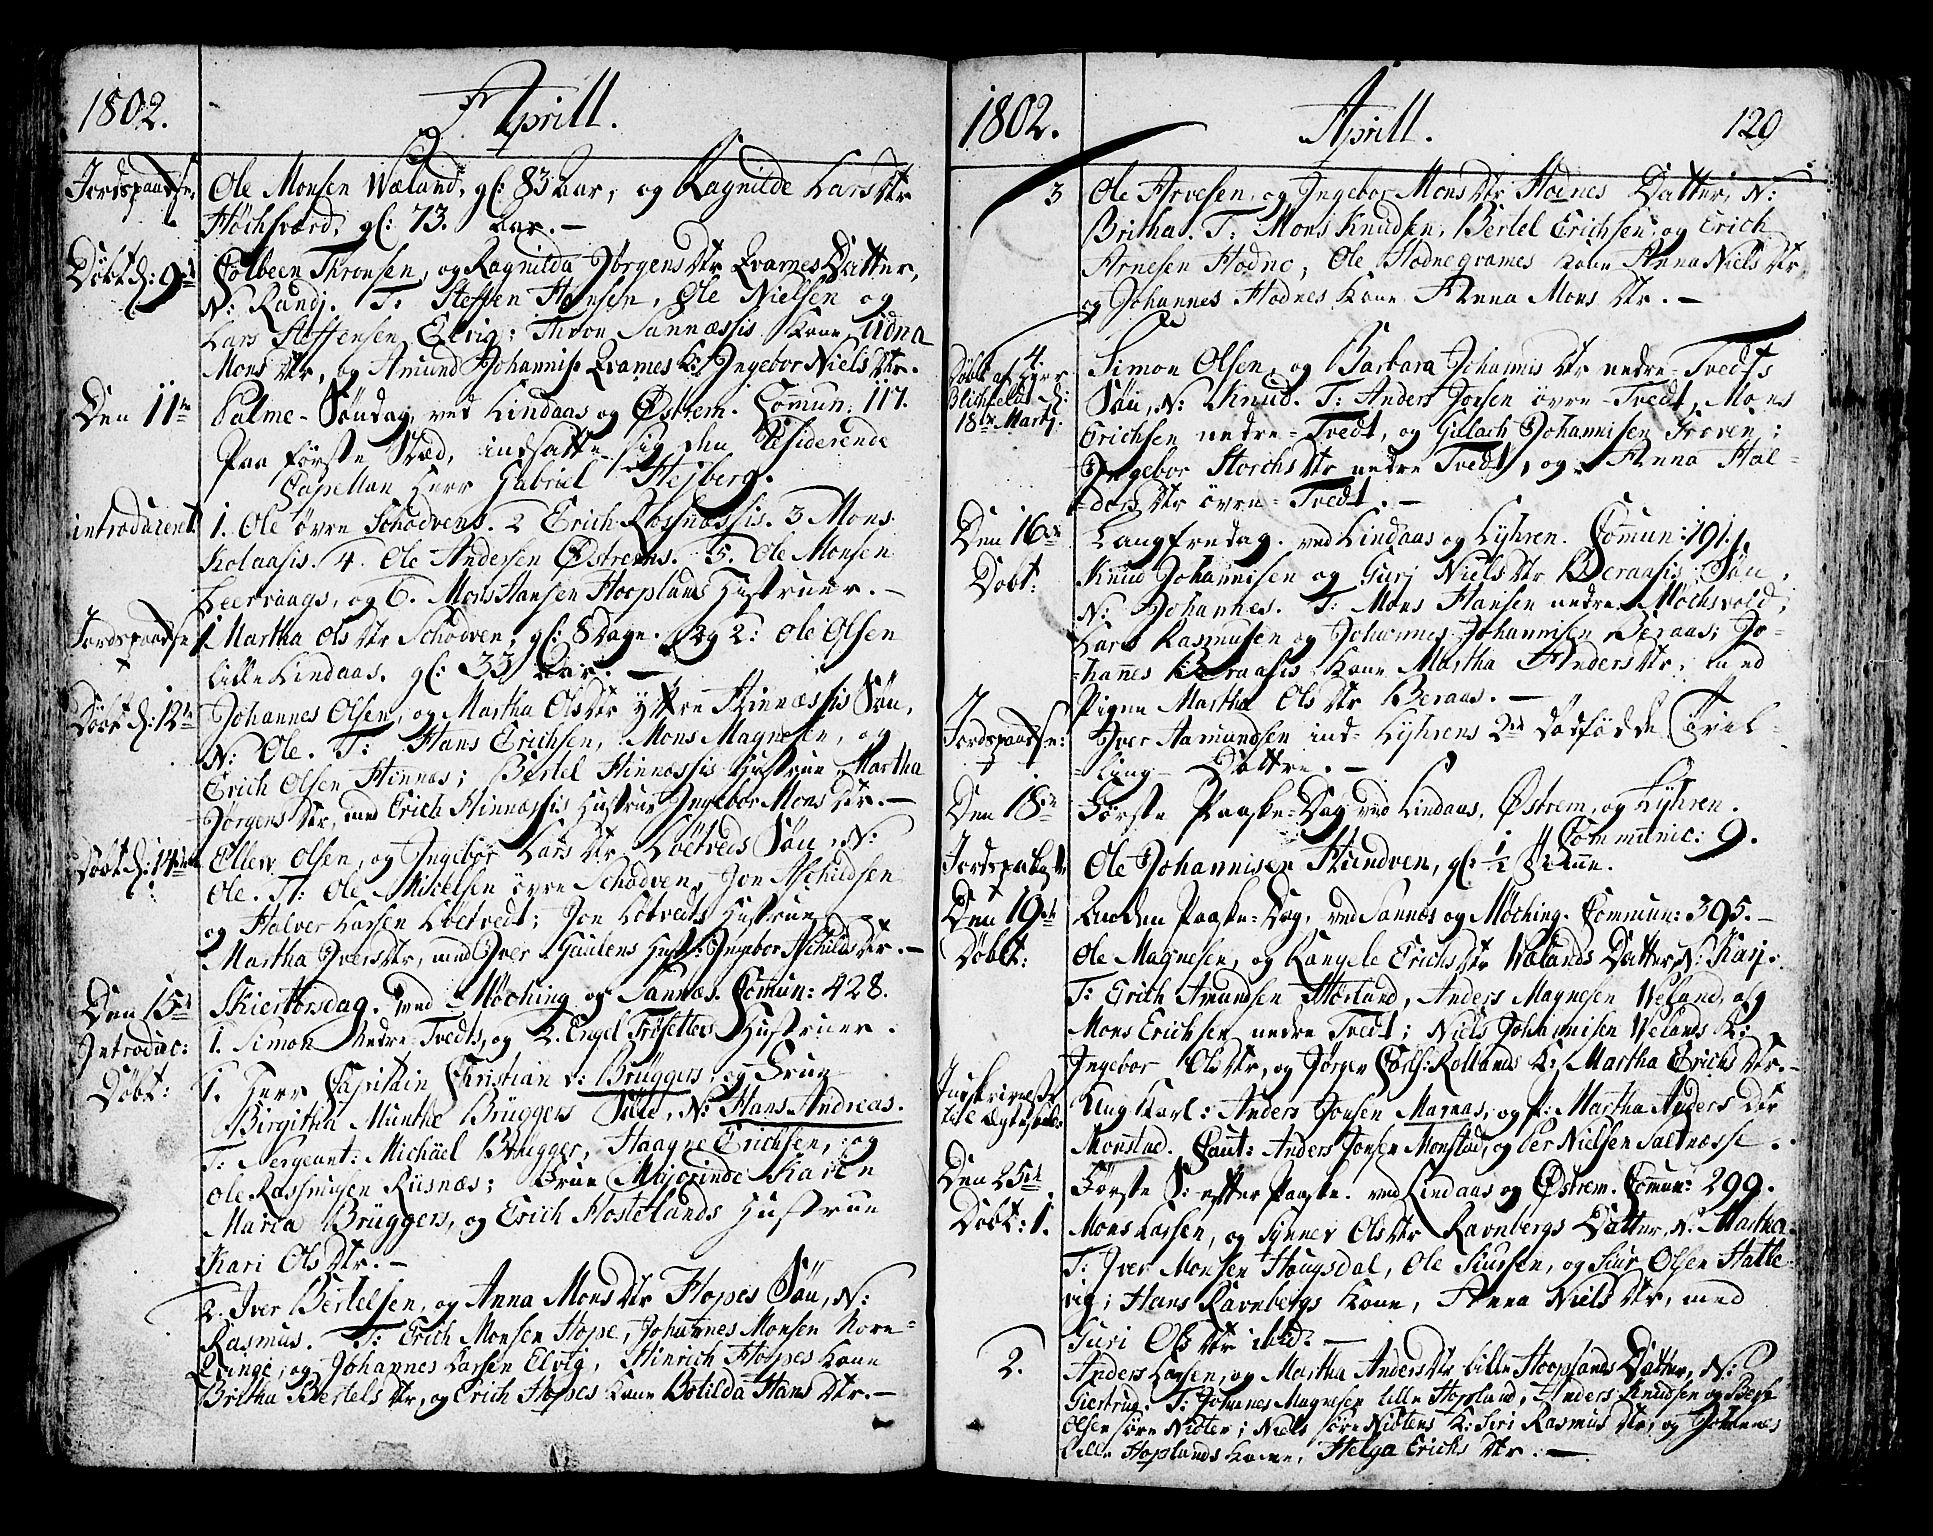 1802. Aprill.
Jordspaadsn: Ole Monsen Wæland, gl: 83 Aar, og Ragnilde Lars Dtr
Høchsværd, gl: 73. Aar. –
Døbt d: 9de Colbeen Thronsen, og Ragnilda Jørgens Dtr Qvames Datter,
N: Randj. T: Steffen Hansen, Ole Nielsen og
Lars Steffensen Elvig; Thron Sannæssis Kone Udna
Mons Dtr, og Amund Johannis: Qvames K: Ingebor Niels Dtr.
Den 11te Palme-Søndag, ved Lindaas og Østrem. Comun: 117.
Paa første Stæd, indsatte sig den Residerende
Capellan Herr Gabriel Hejberg.
introduceret 1. Ole øvre Schodvens. 2 Erich Rosnæssis. 3 Mons
Kolaasis. 4. Ole Andersen Østrems. 5. Ole Monsen
Leervaags, og 6. Mons Hansen Hooplands Hustruer. –
Jordspaadsn 1. Martha Ols Dtr Schodven, gl: 8 Dage. Og 2: Ole Olsen
Lille Lindaas. gl: 33 Aar. –
Døbt d: 12te Johannes Olsen, og Martha Ols Dtr yttre Hinnæssis Søn,
N: Ole. T: Hans Erichsen, Mons Magnesen, og
Erich Olsen Hinnæs; Bertel Hinnæssis Hustrue Martha
Jørgens Dtr, med Erich Hinnæssis Hustrue Ingebor Mons Dtr. –
Døbt d: 14de Ellew Olsen, og Ingebor Lars Dtr Lötveds Søn N:
Ole. T: Ole Mikkelsen øvre Schodven, Jon Aschildsen
og Halver Larsen Lötvedt; Jon Lötvedts Hustrue
Martha Ivers Dtr, med Iver Haulens Hust: Ingebor Aschilds Dtr. –
Den 15de Skiertorsdag. ved Möching og Sannæs. Comun: 428.
Introduc: 1. Simon Nedre Tvedts, og 2. Engel Frösettes Hustruer.
Døbt: 1. Herr Capitain Christian v: Brüggers, og Frue
Birgitha Munthe Brüggers Søn, N: Hans Andreas.
T: Sergeant: Michäel Brügger, Haagne Erichsen, og
Ole Rasmusen Risnæs; Frue Majorinde Karen
Maria Brüggers, og Erich Fostelands Hustrue
Kari Ols Dtr. –
2. Iver Bertelsen, og Anna Mons Dtr Hopes Søn, N:
Rasmus. T: Erich Monsen Hope, Johannes Monsen Nore-
Qvinge, og Johannes Larsen Elvig, Hinrich Hopes Kone
Britha Bertels Dtr, og Erich Hopes Kone Botilda Hans Dtr. –
1802. Aprill. 129
3 Ole Arvesen, og Ingebor Mons Dtr Hodnes Datter, N:
Britha. T: Mons Knudsen, Bertel Erichsen, og Erich
Arnesen Hodne; Ole Hodneqvames Kone Anna Niels Dtr
og Johannes Hodnes Kone Anna Mons Dtr. –
4. Simon Olsen, og Barbara Johannis Dtr nedre-Tvedts
Døbt af Herr Søn, N: Knud. T: Anders Jonsen øvre-Tvedt, Mons
d: 18de Martj: Erichsen nedre-Tvedt, og Gulach Johannisen
Ingebor Storchs Dtr nedre Tvedt, og Anna Hal-
-dors Dtr øvre-Tvedt. –
Den 16de Langfredag. ved Lindaas og Lyhren. Comun: 191.
Døbt: Knud Johannisen og Gurj Niels Dtr Beraasis Søn,
N: Johannes. T: Mons Hansen nedre Mochsvold,
Lars Rasmusen og Johannes Johannisen Beraas; Jo-
-hannes Beraasis Kone Martha Anders Dtr, med
Pigen Martha Ols Dtr Beraas. –
Jordspaadsn: Iver Aamundsen ind-Lyhrens 2de dødfødde Tvil-
-ling-Døttre. –
Den 18de Første Paaske-Dag ved Lindaas, Østrem, og Lyhren.
Communic: 9.
Jordspadset Ole Johannisen Hundven, gl: 1/2 Aar.
Den 19de Anden Paaske-Dag, ved Sannæs og Möching. Commun: 395. –
Døbt: Ole Magnesen, og Rangele Erichs Dtr Wælands Datter, N: Kasj.
T: Erich Amundsen Hörland, Anders Magnesen Veland, og
Mons Erichsen nedre Tvedt; Niels Johannisen Velands K:
Ingebor Ols Dtr, og Jørgen Rollands K: Martha Erichs Dtr. –
Ung Karl: Anders Jonsen Marnas, og P: Martha Anders Dtr
Monstad. Caut: Anders Jonsen Monstad, og Per Nielsen Saltnæsse.
Den 25de Første S: efter Paaske. ved Lindaas og Østrem. Comun: 299.
Døbt: 1. Mons Larsen, og Synnev Ols Dtr Ravnbergs Datter, N: Martha.
T: Iver Monsen Hougsdal, Ole Siursen, og Siur Olsen Hatle-
vig; Hans Ravnbergs Kone, Anna Niels Dtr, med
Guri Ols Dtr ibid: –
2. Anders Larsen, og Martha Anders Dtr lille Hooplands Datter, N:
Giertrug. T: Johannes Magnesen lille Hopland, Anders Knudsen og
Olsen søre Nidter; Niels søre Nidters K: Siri Rasmus Dtr, og Johannes
Lille Hoplands Kone, Helga Erichs Dtr: –